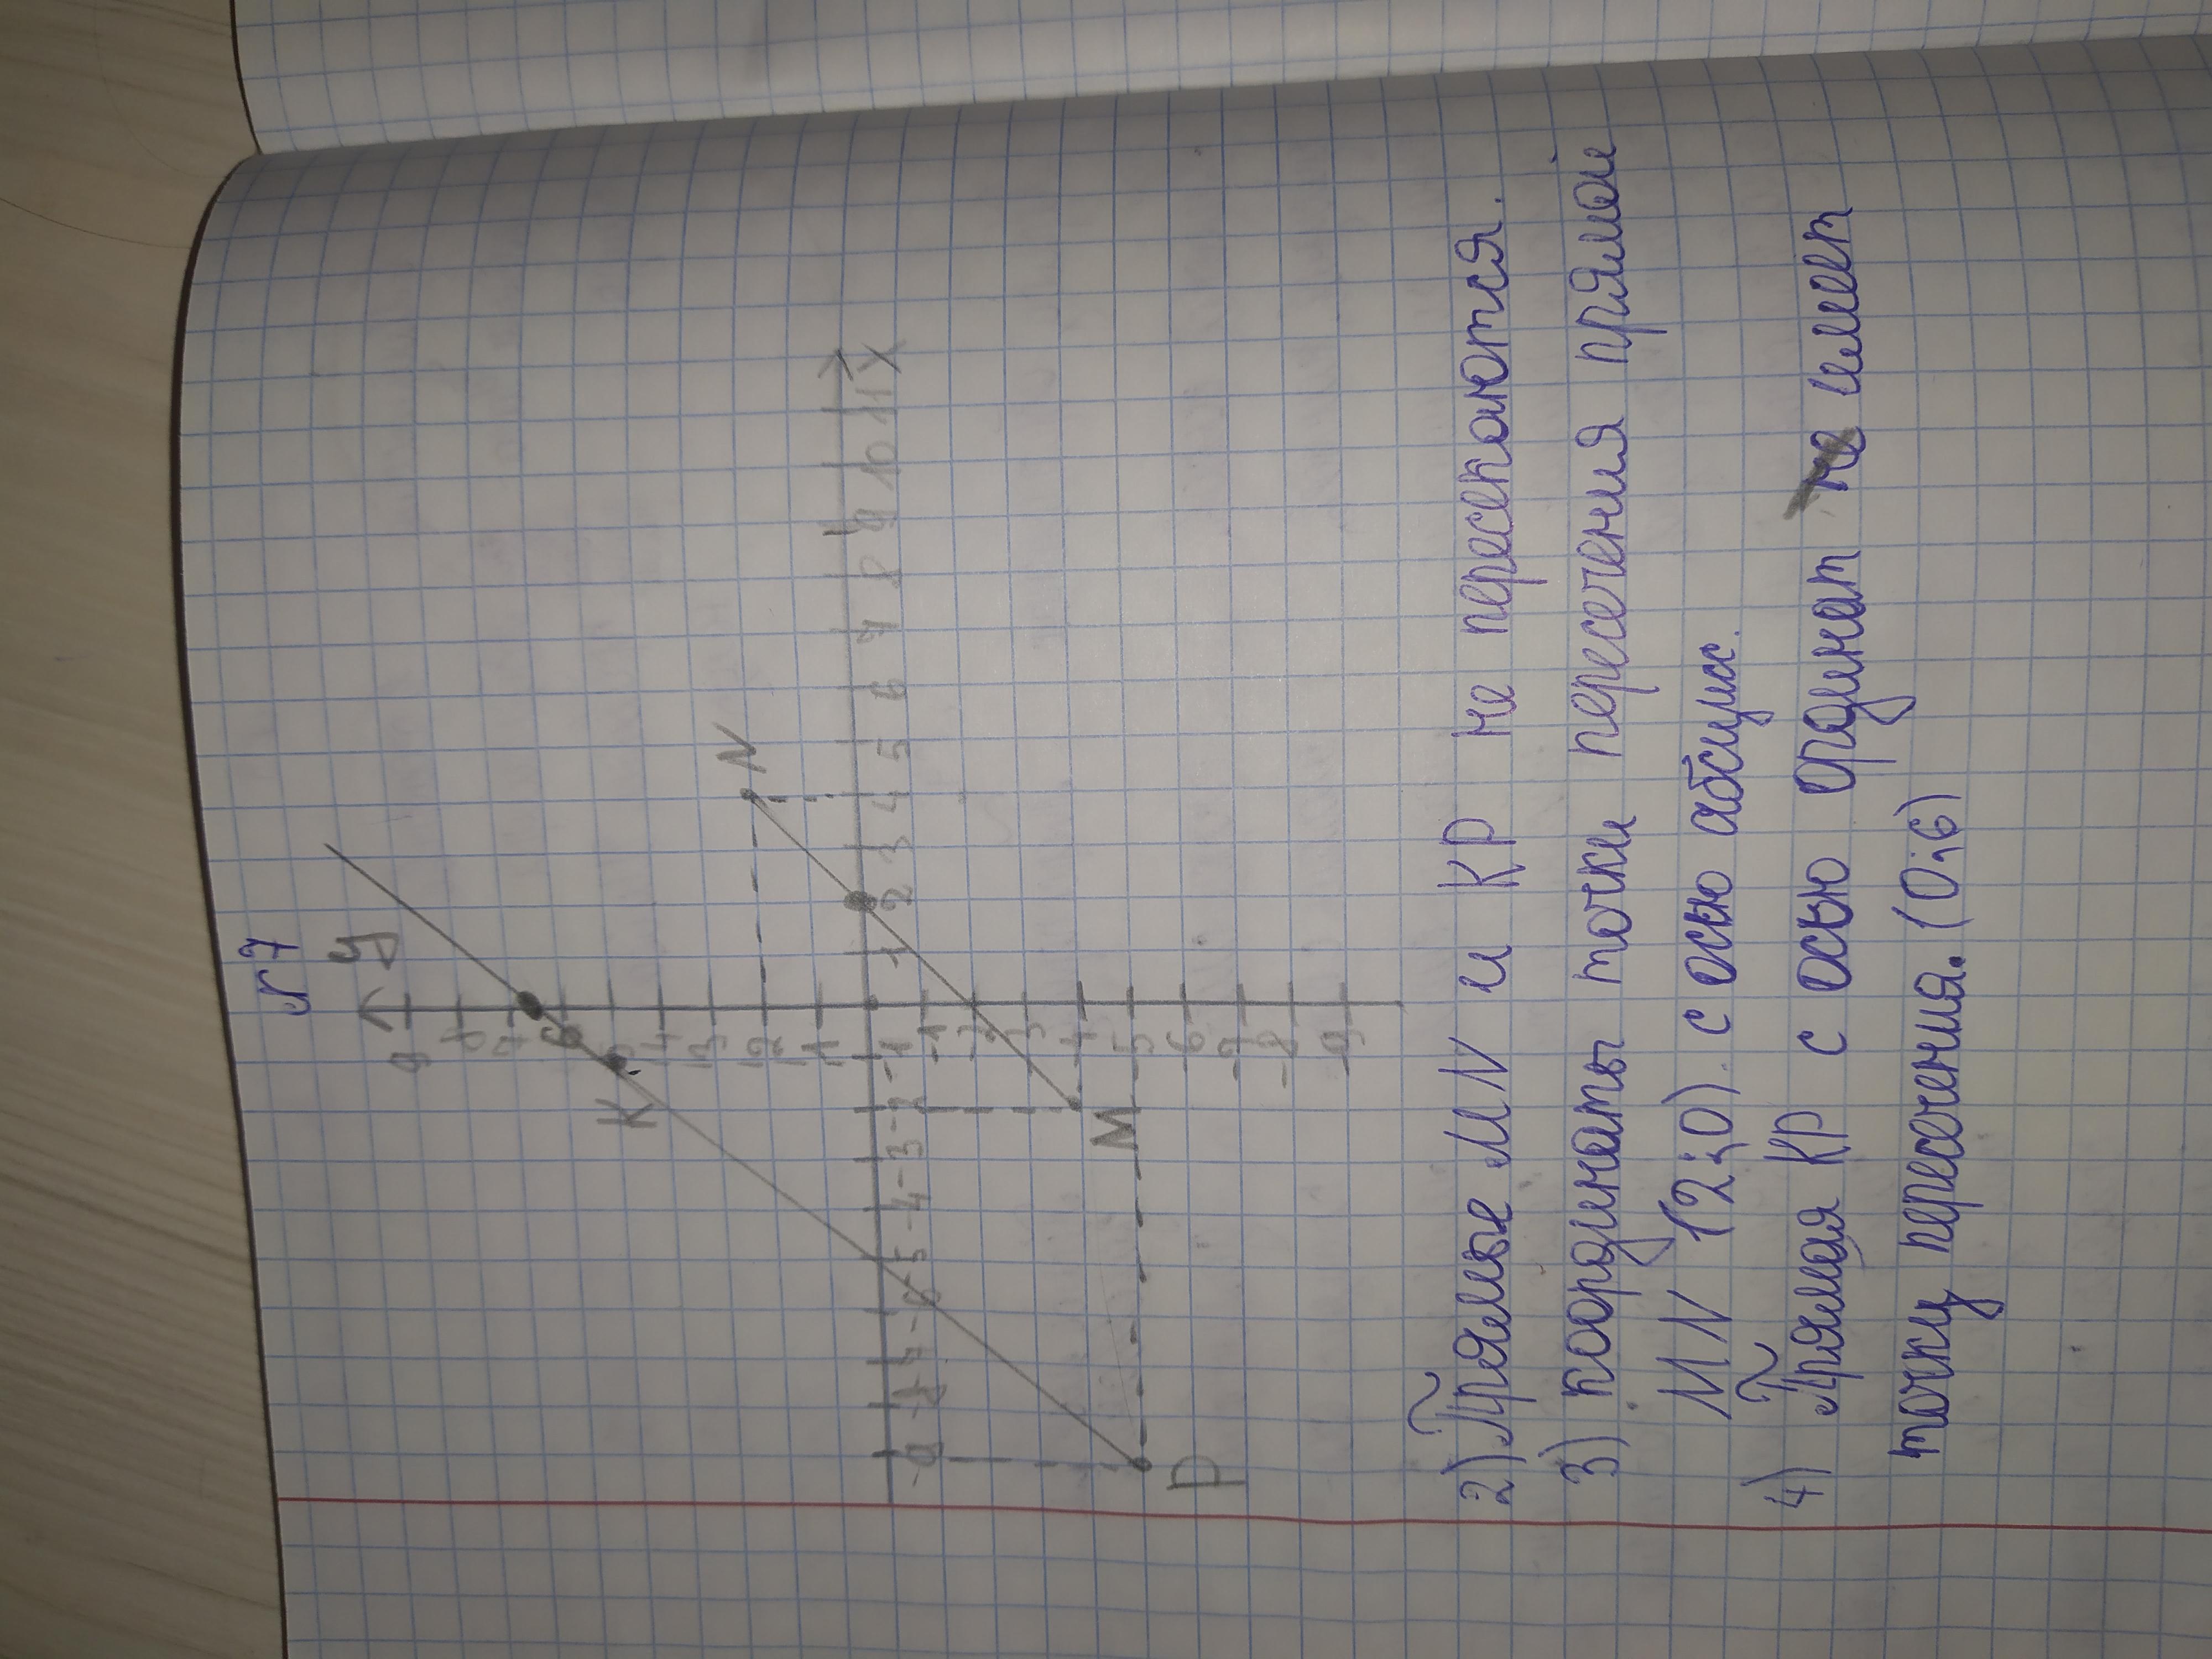 №7
y
9
8
7
6
5
4
3
2
1
K
N
-9 -8 -7 -6 -5 -4 -3 -2 -1 1 2 3 4 5 6 7 8 9 10 11 X
-1
-2
-3
-4
-5
-6
-7
-8
-9
M
P
2) Прямые MN и KP не пересекаются.
3) координаты точки пересечения прямой
MN (2;0). с осью абсцисс.
4) Прямая KP с осью ординат не имеет
точку пересечения. (0;6)